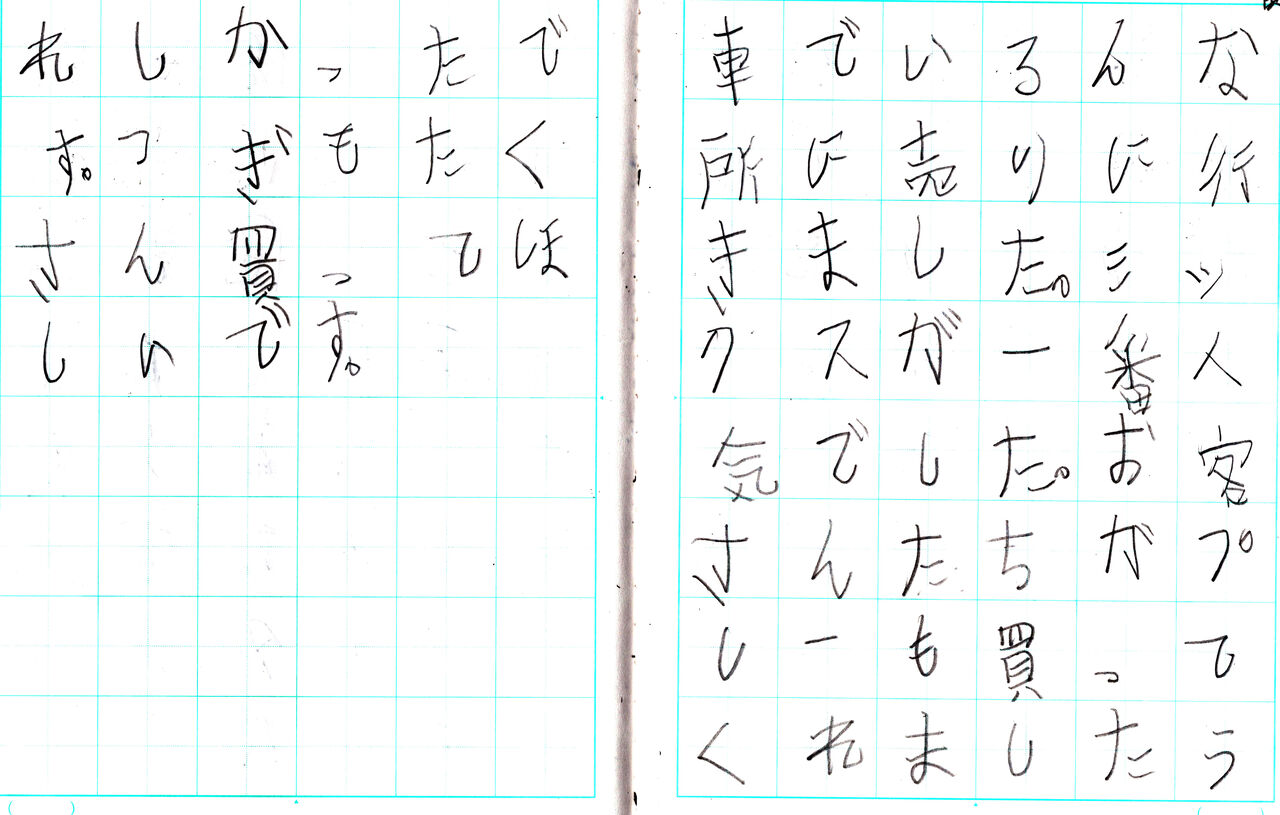 車でいろんな
所に売りに行
きました。ミッ
クスが一番人
気でした。お客
さんたちがプ
レーも買って
くれましたう
れしかったで
す。つぎもたく
さん買ってほ
しいです。